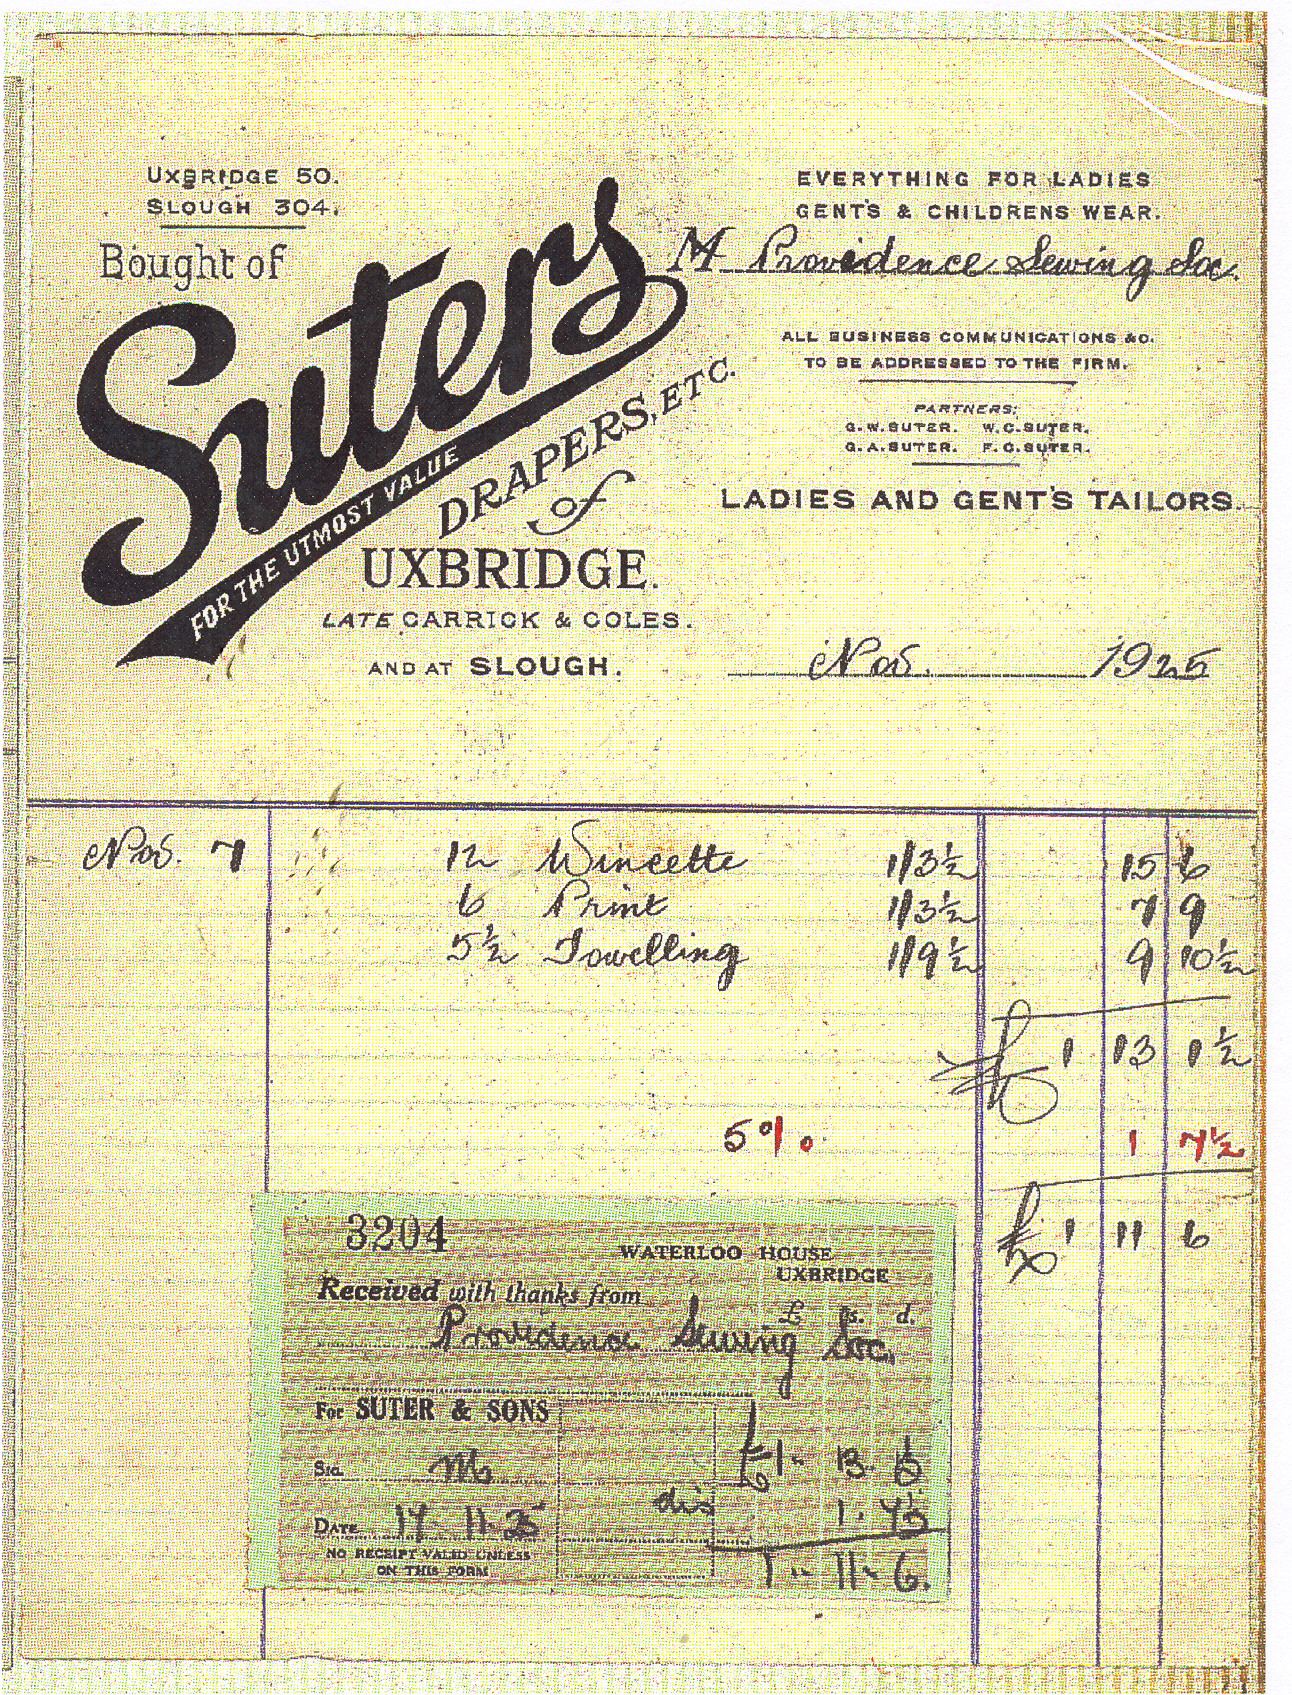 UXBRIDGE 50.
SLOUGH 304.
Bought of
Suters
FOR THE UTMOST VALUE
DRAPERS, ETC.
of
UXBRIDGE.
LATE CARRICK & COLES.
AND AT SLOUGH.
EVERYTHING FOR LADIES
GENT'S & CHILDRENS WEAR.
M Providence Sewing Soc.
ALL BUSINESS COMMUNICATIONS &C.
TO BE ADDRESSED TO THE FIRM.
PARTNERS;
G.W. SUTER. W.C. SUTER.
G.A. SUTER. F.C. SUTER.
LADIES AND GENT'S TAILORS.
Nov. 1925
Nov. 7 12 Wincette 1/3½ 15 6
6 Print 1/3½ 7 9
5½ Towelling 1/9½ 9 10½
£ 1 13 1½
5% 1 7½
£ 1 11 6
3204
WATERLOO HOUSE
UXBRIDGE
Received with thanks from
£ s. d.
Providence Sewing Soc.
For SUTER & SONS
£1 - 13 -
SIG.
dis 1 . 7½
DATE 17 - 11 - 25
1 - 11 - 6.
NO RECEIPT VALID UNLESS
ON THIS FORM